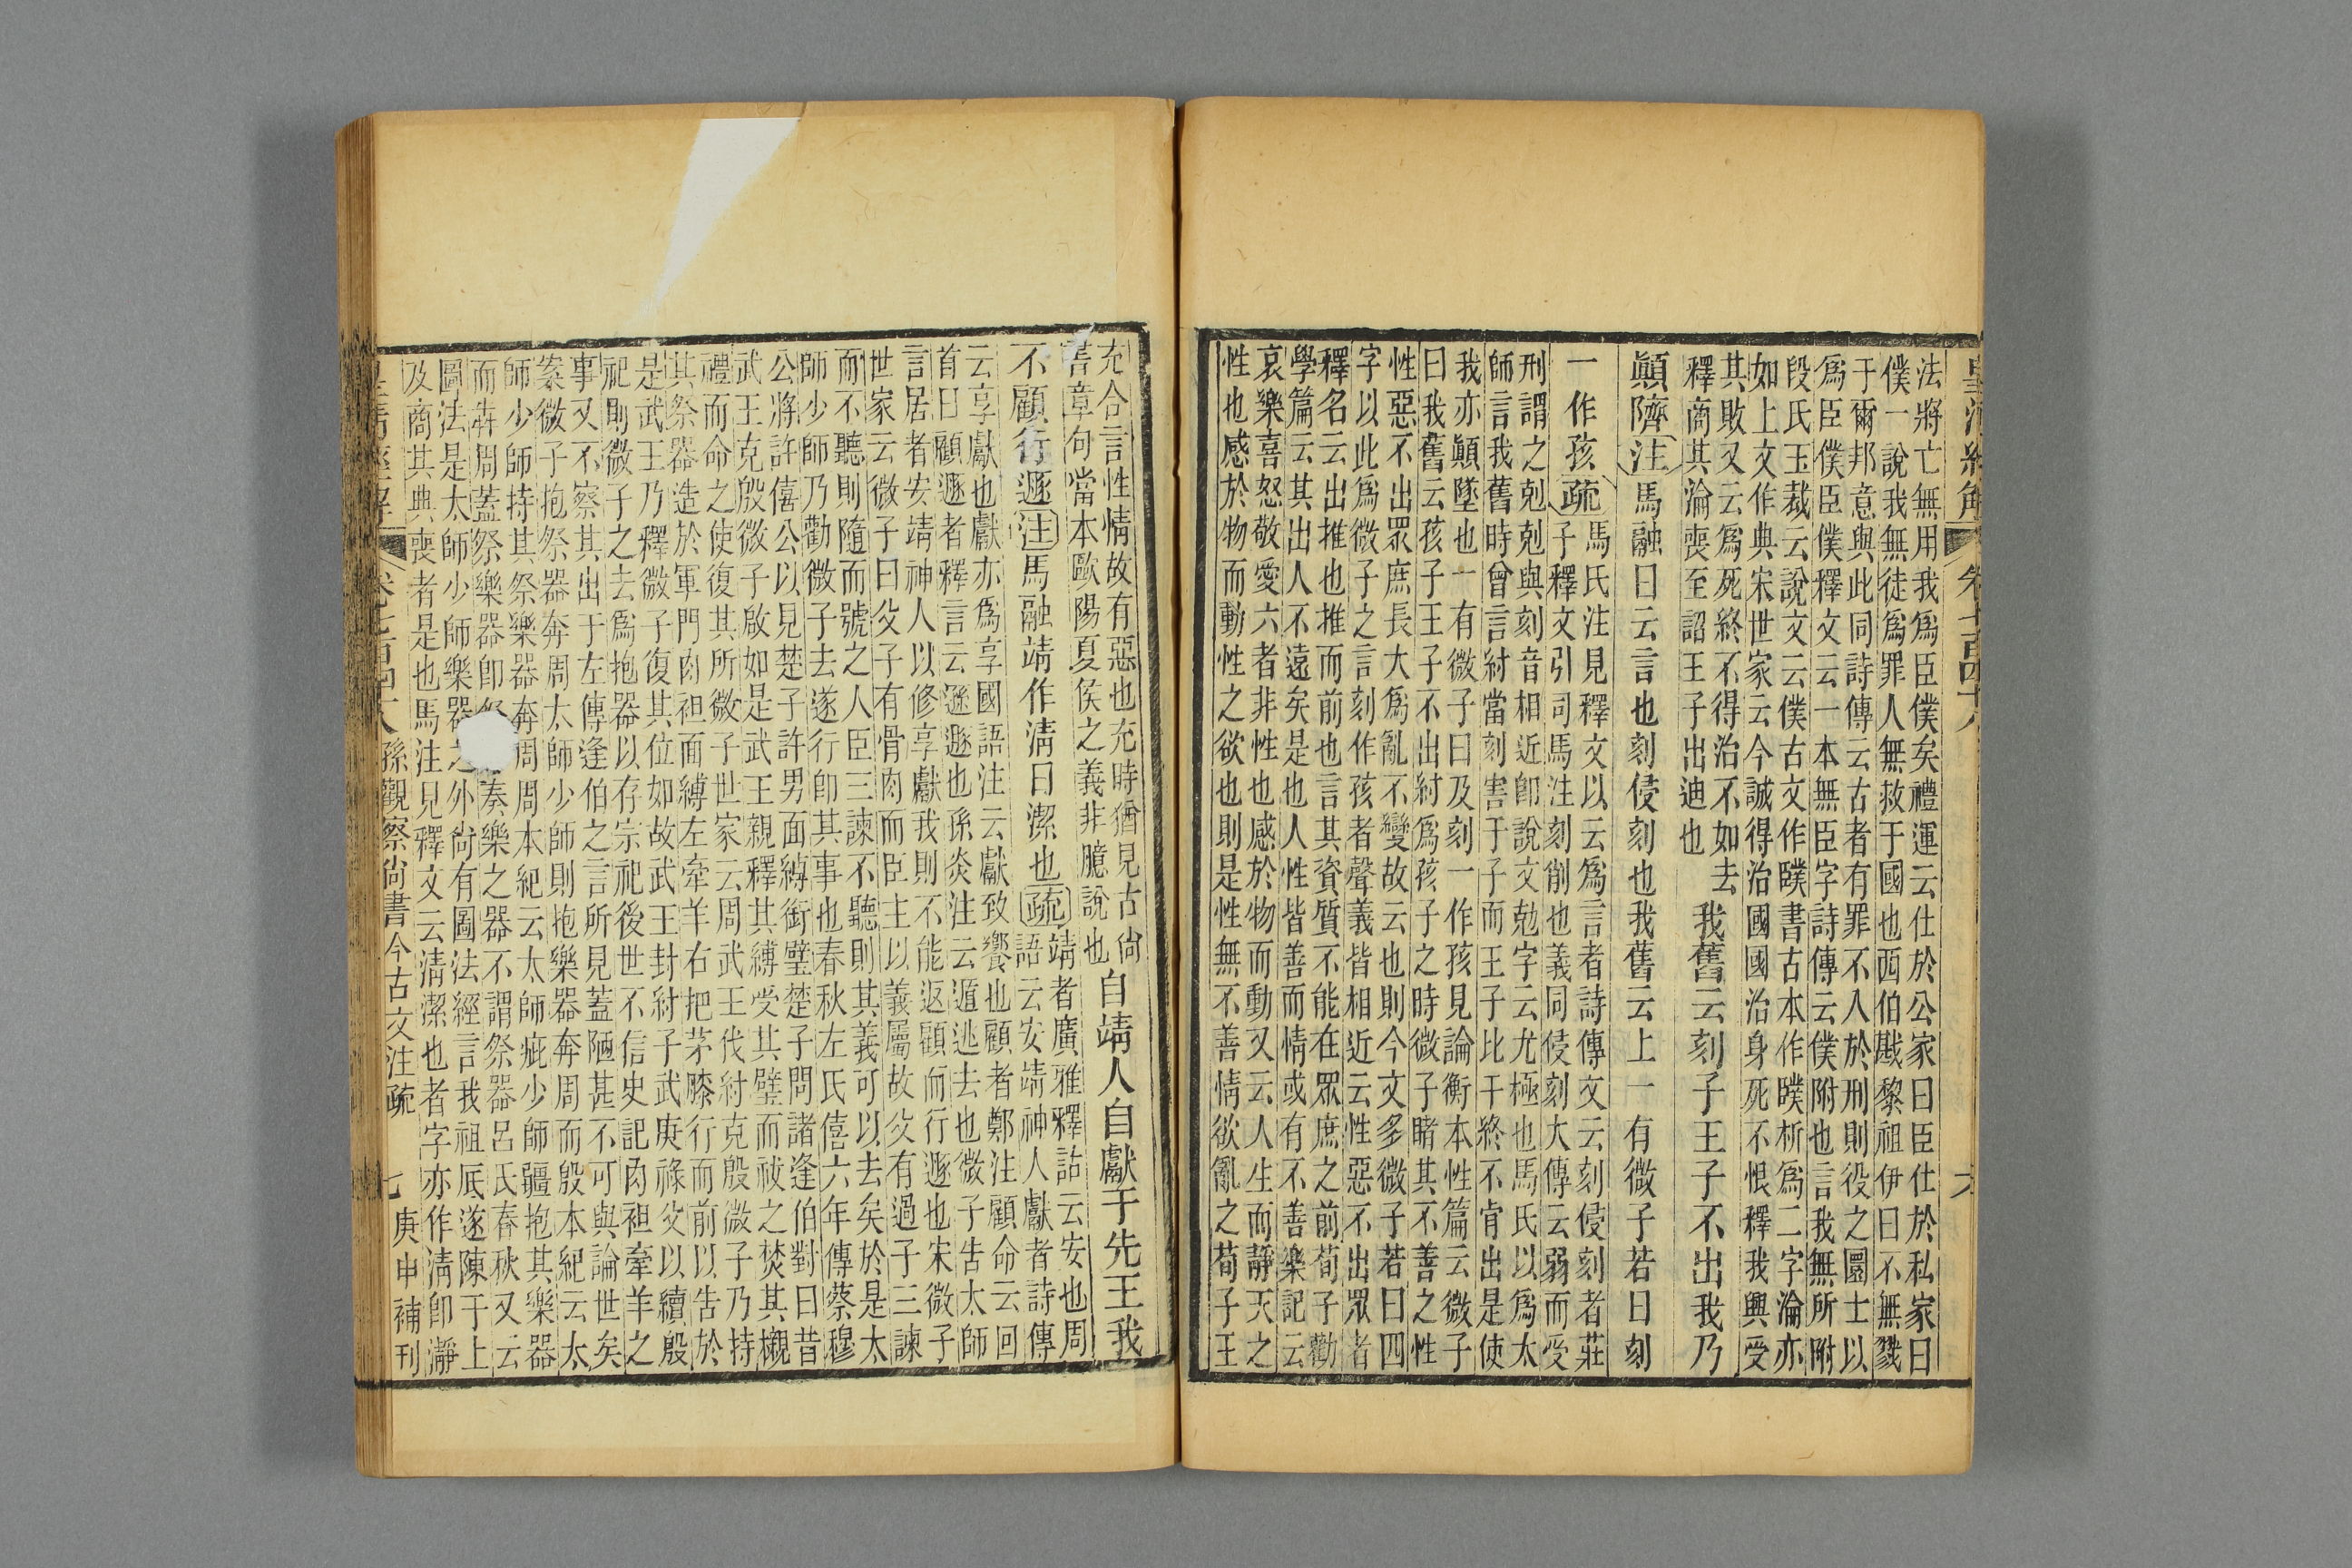 法將亡無用我爲臣僕矣禮運云仕於公家曰臣仕於私家曰
僕一說我無徒爲罪人無救于國也西伯戡黎祖伊曰不無戮
于爾邦意與此同詩傳云古者有罪不入於刑則役之圜土以
爲臣僕臣僕釋文云一本無臣字詩傳云僕附也言我無所附
段氏玉裁云說文云僕古文作䑑書古本作䑑析爲二字淪亦
如上文作典宋世家云今誠得治國國治身死不恨釋我興受
其敗又云爲死終不得治不如去
釋商其淪喪至詔王子出迪也
我舊云刻子王子不出我乃
顚隮注馬融曰云言也刻侵刻也我舊云上一有微子若曰刻
一作孩疏
馬氏注見釋文以云爲言者詩傳文云刻侵刻者莊
子釋文引司馬注刻削也義同侵刻大傳云弱而受
刑謂之剋剋與刻音相近卽說文勀字云尤極也馬氏以爲太
師言我舊時曾言紂當刻害于子而王子比干終不肯出是使
我亦顚墜也一有微子曰及刻一作孩見論衡本性篇云微子
曰我舊云孩子王子不出紂爲孩子之時微子睹其不善之性
性惡不出眾庶長大爲亂不變故云也則今文多微子若曰四
字以此爲微子之言刻作孩者聲義皆相近云性惡不出眾者
釋名云出推也推而前也言其資質不能在眾庶之前荀子勸
學篇云其出人不遠矣是也人性皆善而情或有不善樂記云
哀樂喜怒敬愛六者非性也感於物而動又云人生而靜天之
性也感於物而動性之欲也則是性無不善情欲亂之荀子王
六
充合言性情故有惡也充時猶見古尙
書章句當本歐陽夏侯之義非臆說也
自靖人自獻于先王我
不顧行遯注馬融靖作淸曰潔也疏
靖者廣雅釋詁云安也周
語云安靖神人獻者詩傳
云享獻也獻亦爲享國語注云獻致饗也顧者鄭注顧命云回
首曰顧遯者釋言云遯遯也孫炎注云遁逃去也微子吿太師
言居者安靖神人以修享獻我則不能返顧而行遯也宋微子
世家云微子曰父子有骨肉而臣主以義屬故父有過子三諫
而不聽則隨而號之人臣三諫不聽則其義可以去矣於是太
師少師乃勸微子去遂行卽其事也春秋左氏僖六年傳蔡穆
公將許僖公以見楚子許男面縛銜璧楚子問諸逢伯對曰昔
武王克殷微子啟如是武王親釋其縛受其璧而祓之焚其櫬
禮而命之使復其所微子世家云周武王伐紂克殷微子乃持
其祭器造於軍門肉袒面縛左牽羊右把茅膝行而前以吿於
是武王乃釋微子復其位如故武王封紂子武庚祿父以續殷
祀則微子之去爲抱器以存宗祀後世不信史記肉袒牽羊之
事又不察其出于左傳逢伯之言所見蓋陋甚不可與論世矣
案微子抱祭器奔周太師少師則抱樂器奔周而殷本紀云太
師少師持其祭樂器奔周周本紀云太師疵少師彊抱其樂器
而犇周蓋祭樂器卽祭奏樂之器不謂祭器呂氏春秋又云
圖法是太師少師樂器之外尙有圖法經言我祖厎遂陳于上
及商其典喪者是也馬注見釋文云淸潔也者字亦作淸卽瀞
孫觀察尙書今古文注疏
七
庚申補刊